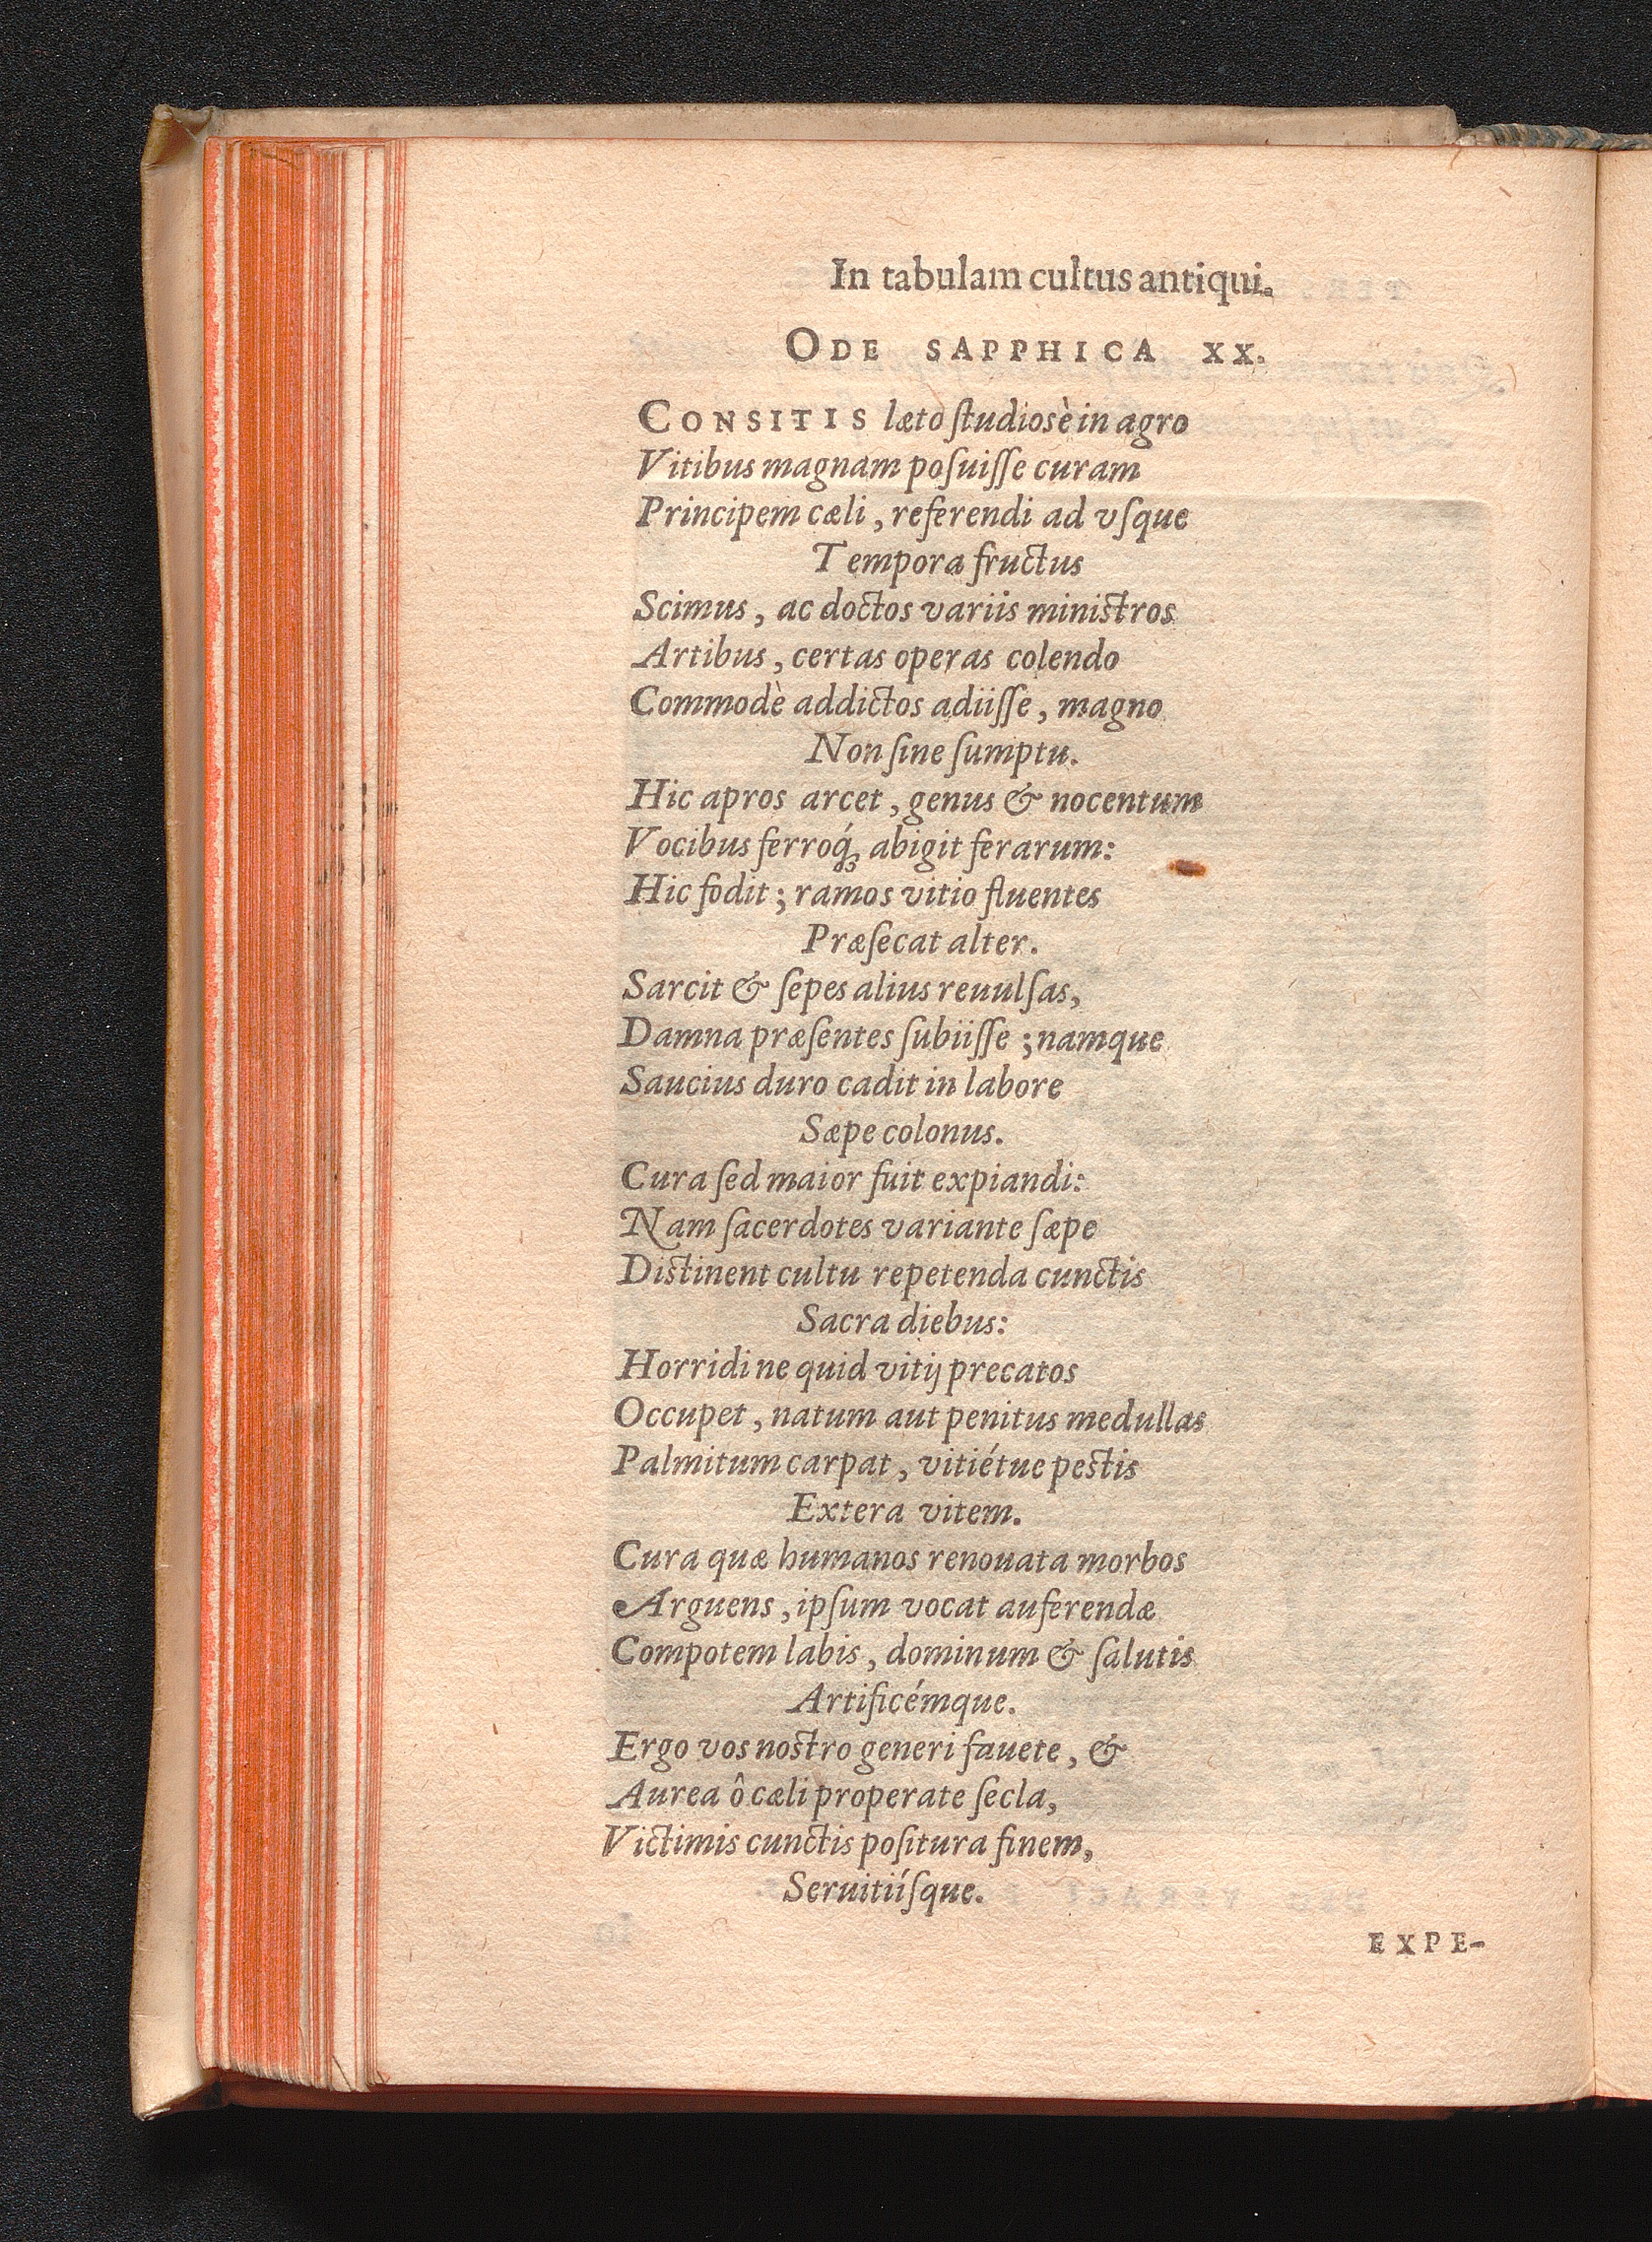 In tabulam cultus antiqui.
ODE SAPPHICA XX.
CONSITIS læto ſtudiosè in agro
Vitibus magnam poſuiſſe curam
Principem cæli, referendi ad vſque
Tempora fructus
Scimus, ac doctos variis miniſtros
Artibus, certas operas colendo
Commodè addictos adiiſſe, magno
Non ſine ſumptu.
Hic apros arcet, genus & nocentum
Vocibus ferroq́ꝫ abigit ferarum:
Hic fodit; ramos vitio fluentes
Præſecat alter.
Sarcit & ſepes alius reuulſas,
Damna præſentes ſubiiſſe; namque
Saucius duro cadit in labore
Sæpe colonus.
Cura ſed maior fuit expiandi:
Nam ſacerdotes variante ſæpe
Diſtinent cultu repetenda cunctis
Sacra diebus:
Horridi ne quid vitij precatos
Occupet, natum aut penitus medullas
Palmitum carpat, vitiétue peſtis
Extera vitem.
Cura quæ humanos renouata morbos
Arguens, ipſum vocat auferendæ
Compotem labis, dominum & ſalutis
Artificémque.
Ergo vos noſtro generi fauete, &
Aurea ô cæli properate ſecla,
Victimis cunctis poſitura finem,
Seruitiíſque.
EXPE-